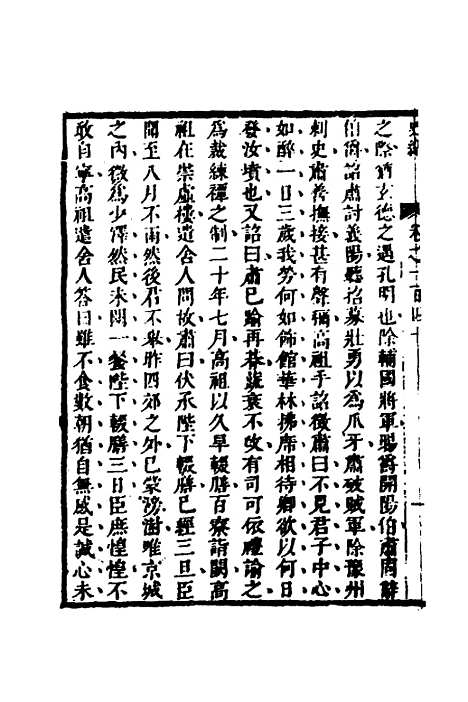 之際猶玄德之遇孔明也除輔國將軍賜爵開陽伯肅固辭
伯爵詔肅討義陽聽招募壯勇以爲爪牙肅破賊軍除豫州
刺史肅善撫接甚有聲稱高祖手詔徵肅曰不見君子中心
如醉一日三歲我勞何如飾館華林拂席相待卿欲以何日
發汝墳也又詔曰肅已踰再朞蔬衰不改有司可依禮諭之
爲裁練禫之制二十年七月高祖以久旱輟膳百寮詣闕高
祖在崇虛樓遣舍人問故肅曰伏承陛下輟膳已經三旦臣
聞至八月不雨然後君不舉昨四郊之外已蒙滂澍唯京城
之內微爲少澤然民未闕一餐陛下輟膳三日臣庶惶惶不
敢自寧高祖遣舍人答曰雖不食數朝猶自無感是誠心未